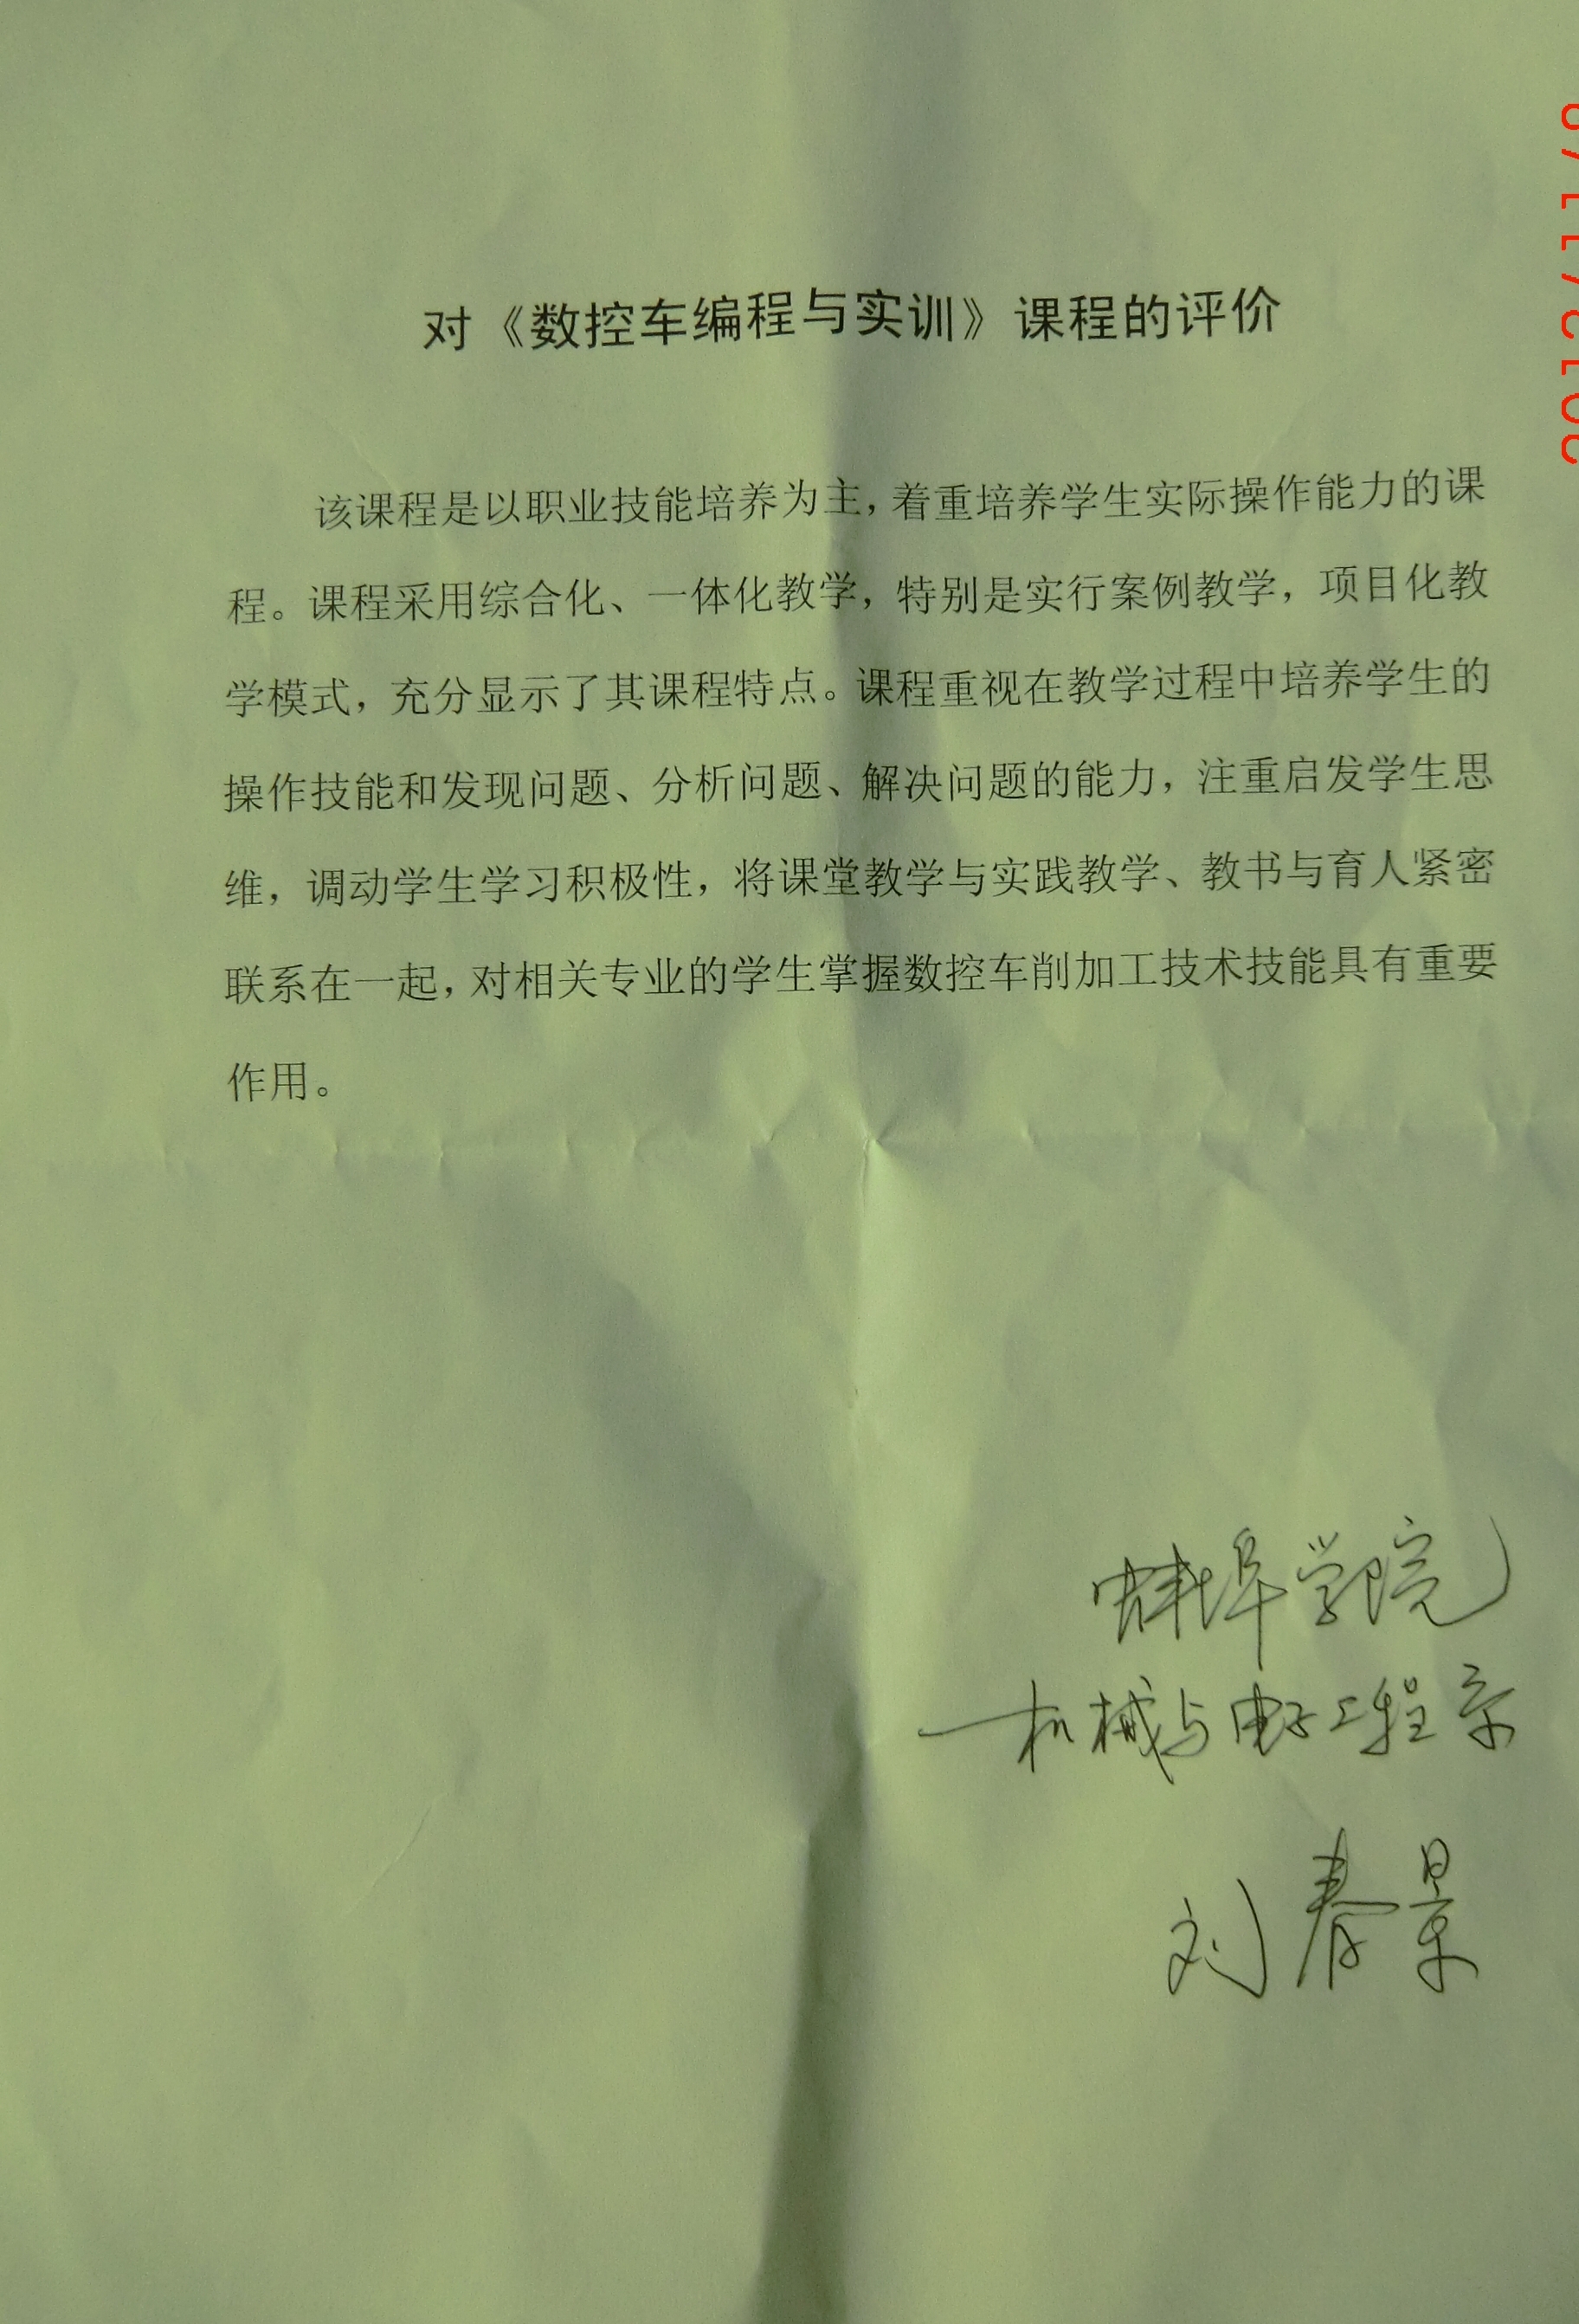 对《数控车编程与实训》课程的评价
该课程是以职业技能培养为主，着重培养学生实际操作能力的课
程。课程采用综合化、一体化教学，特别是实行案例教学，项目化教
学模式，充分显示了其课程特点。课程重视在教学过程中培养学生的
操作技能和发现问题、分析问题、解决问题的能力，注重启发学生思
维，调动学生学习积极性，将课堂教学与实践教学、教书与育人紧密
联系在一起，对相关专业的学生掌握数控车削加工技术技能具有重要
作用。
蚌埠学院
机械与电子工程系
刘春景